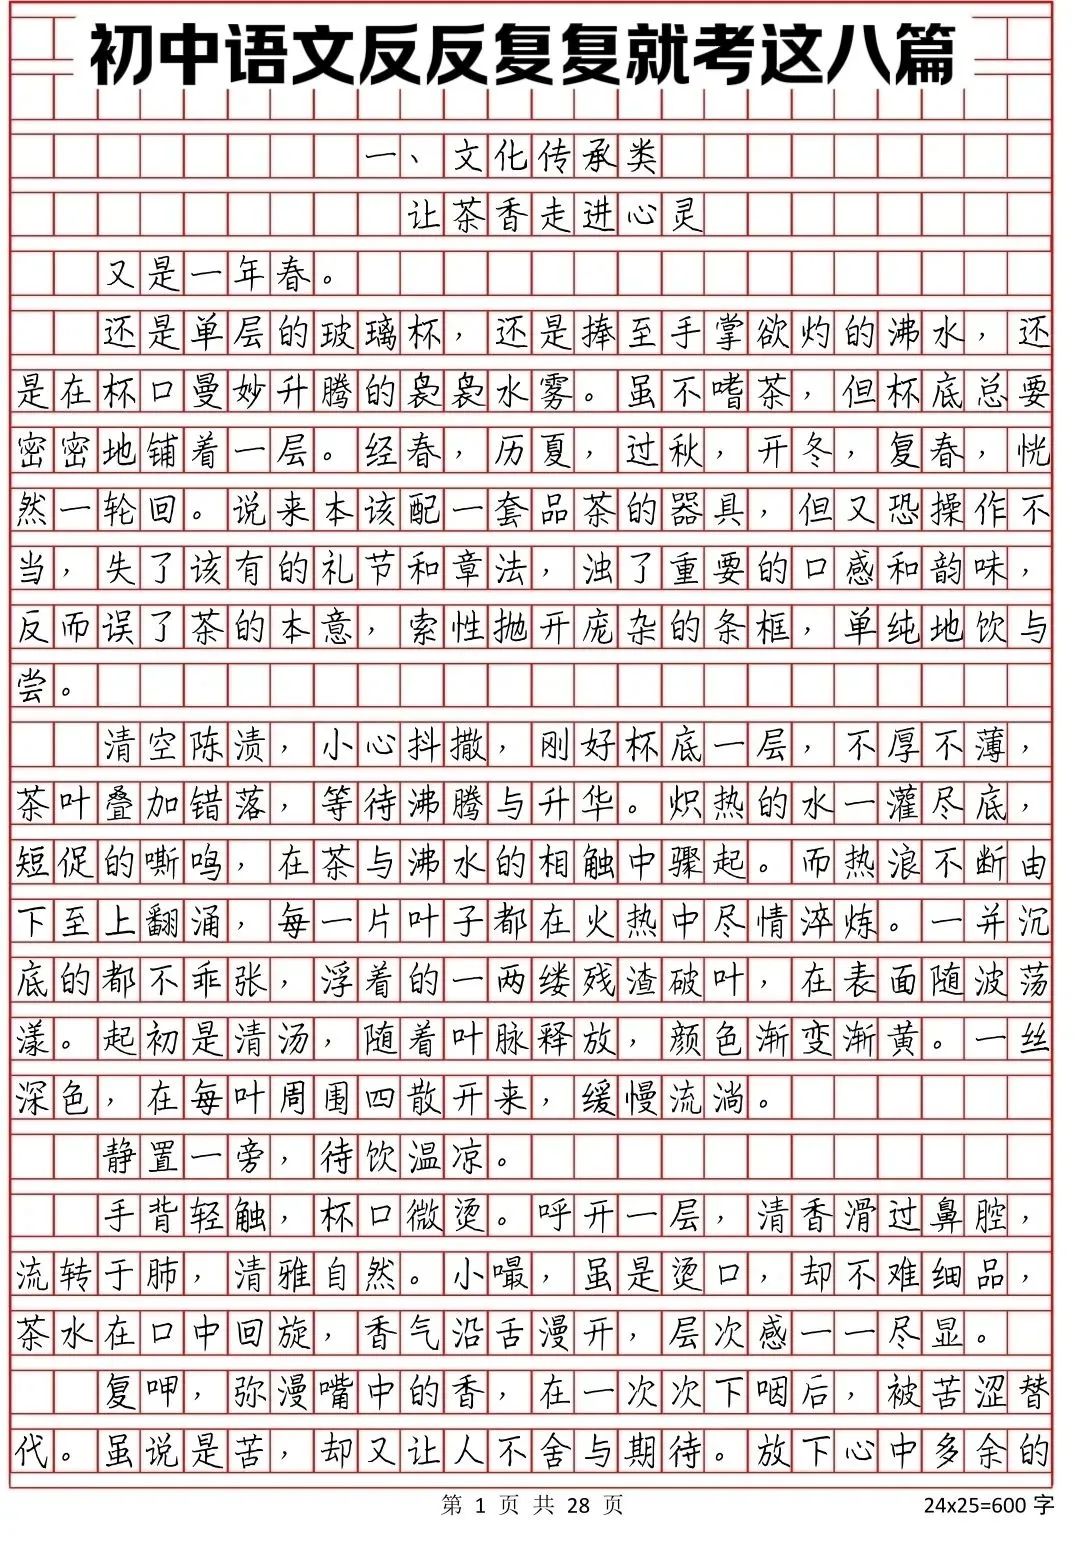 初中语文反反复复就考这八篇
一、文化传承类
让茶香走进心灵
又是一年春。
还是单层的玻璃杯，还是捧至手掌欲灼的沸水，还
是在杯口曼妙升腾的袅袅水雾。虽不嗜茶，但杯底总要
密密地铺着一层。经春，历夏，过秋，开冬，复春，恍
然一轮回。说来本该配一套品茶的器具，但又恐操作不
当，失了该有的礼节和章法，浊了重要的口感和韵味，
反而误了茶的本意，索性抛开庞杂的条框，单纯地饮与
尝。
清空陈渍，小心抖撒，刚好杯底一层，不厚不薄，
茶叶叠加错落，等待沸腾与升华。炽热的水一灌尽底，
短促的嘶鸣，在茶与沸水的相触中骤起。而热浪不断由
下至上翻涌，每一片叶子都在火热中尽情淬炼。一并沉
底的都不乖张，浮着的一两缕残渣破叶，在表面随波荡
漾。起初是清汤，随着叶脉释放，颜色渐变渐黄。一丝
深色，在每叶周围四散开来，缓慢流淌。
静置一旁，待饮温凉。
手背轻触，杯口微烫。呼开一层，清香滑过鼻腔，
流转于肺，清雅自然。小嘬，虽是烫口，却不难细品，
茶水在口中回旋，香气沿舌漫开，层次感一一尽显。
复呷，弥漫嘴中的香，在一次次下咽后，被苦涩替
代。虽说是苦，却又让人不舍与期待。放下心中多余的
第 1 页 共 28 页
24x25=600 字